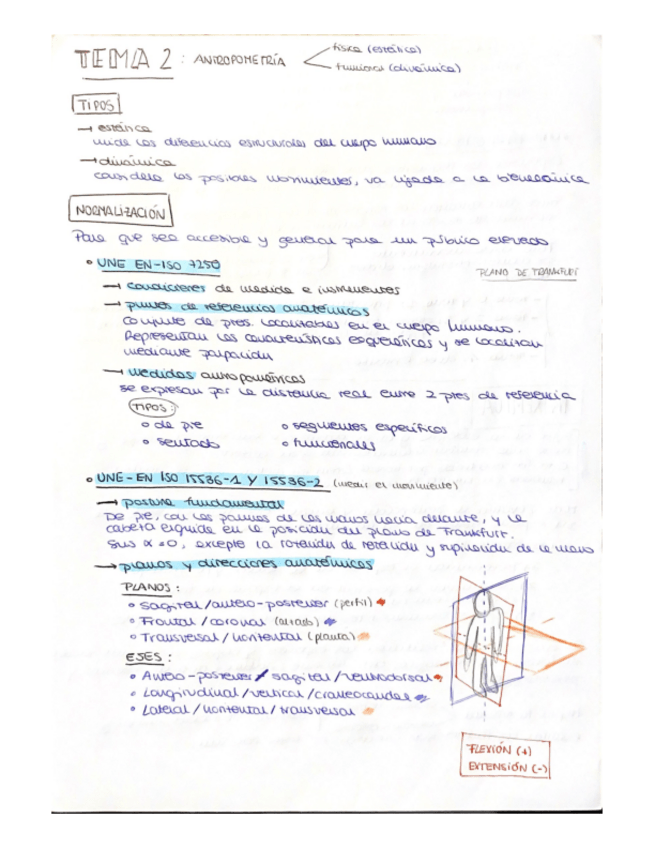 TEMA 2: ANTROPOMETRÍA
física (estática)
funcional (dinámica)
TIPOS
→ estática
mide las diferencias estructurales del cuerpo humano
→ dinámica
considera los posibles movimientos, va ligada a la biomecánica
NORMALIZACIÓN
Para que sea accesible y general para un público elevado
• UNE EN-ISO 7250
PLANO DE FRANKFURT
→ condiciones de medida e instrumentos
→ puntos de referencias anatómicos
Conjunto de ptos. localizables en el cuerpo humano.
Representan las características esqueléticas y se localizan
mediante palpación
→ medidas antropométricas
se expresan por la distancia real entre 2 ptos de referencia
TIPOS:
o de pie
o segmentos específicos
o sentado
o funcionales
• UNE-EN ISO 15536-1 Y 15536-2 (medir el movimiento)
→ postura fundamental
De pie, con las palmas de las manos hacia delante, y la
cabeza erguida en la posición del plano de Frankfurt.
Sus α=0, excepto la rotación de retención y supinación de la mano
→ planos y direcciones anatómicos
PLANOS:
• Sagital/antero-posterior (perfil)
• Frontal/coronal (alzado)
• Transversal/horizontal (planta)
ESES:
• Antero-posterior/sagital/ventrodorsal
• Longitudinal/vertical/craneocaudal
• Lateral/horizontal/transversal
FLEXIÓN (+)
EXTENSIÓN (-)